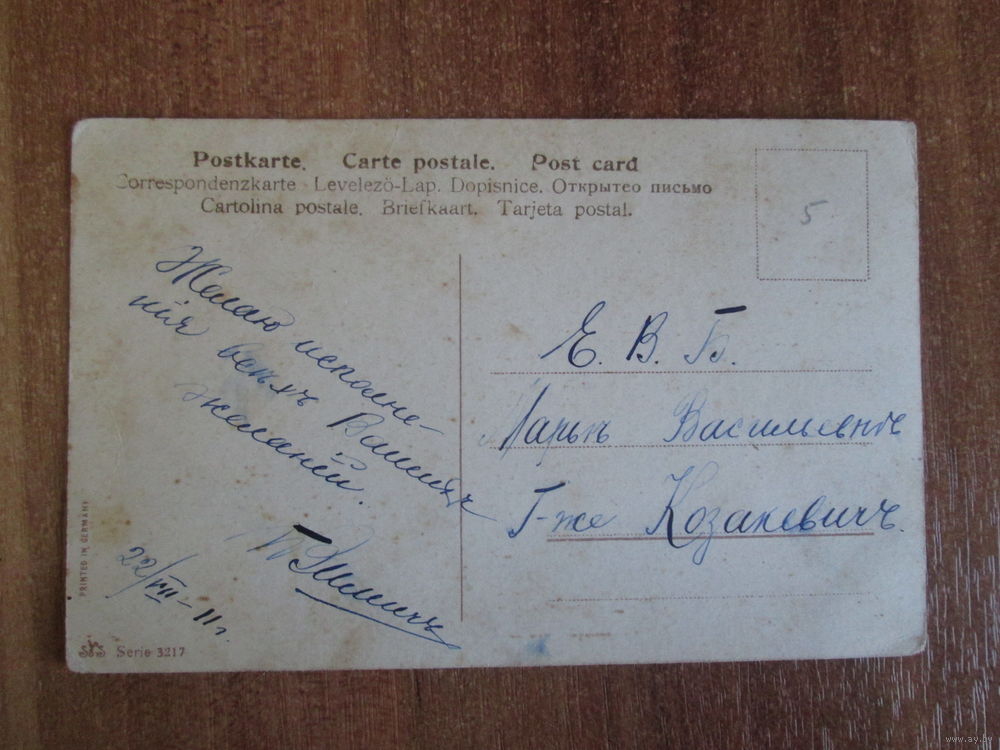 Postkarte. Carte postale. Post card
Correspondenzkarte Levelezö-Lap. Dopisnice. Открытео письмо
Cartolina postale. Briefkaart. Tarjeta postal.
5
Желаю исполне-
нія всѣхъ Вашихъ
желаній.
22/VII-11г.
Е. В. Б.
Марьѣ Васильевнѣ
Г-же Козакевичъ.
PRINTED IN GERMANY
Serie 3217
www.ay.by